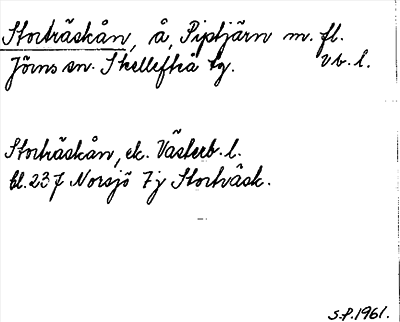 Storträskån, å, Piptjärn m. fl.
Jörns sn. Skellefteå tg. Vb. l.
Storträskån, ek. Västerb. l.
bl. 237 Norsjö 7j Storträsk.
S.P. 1961.